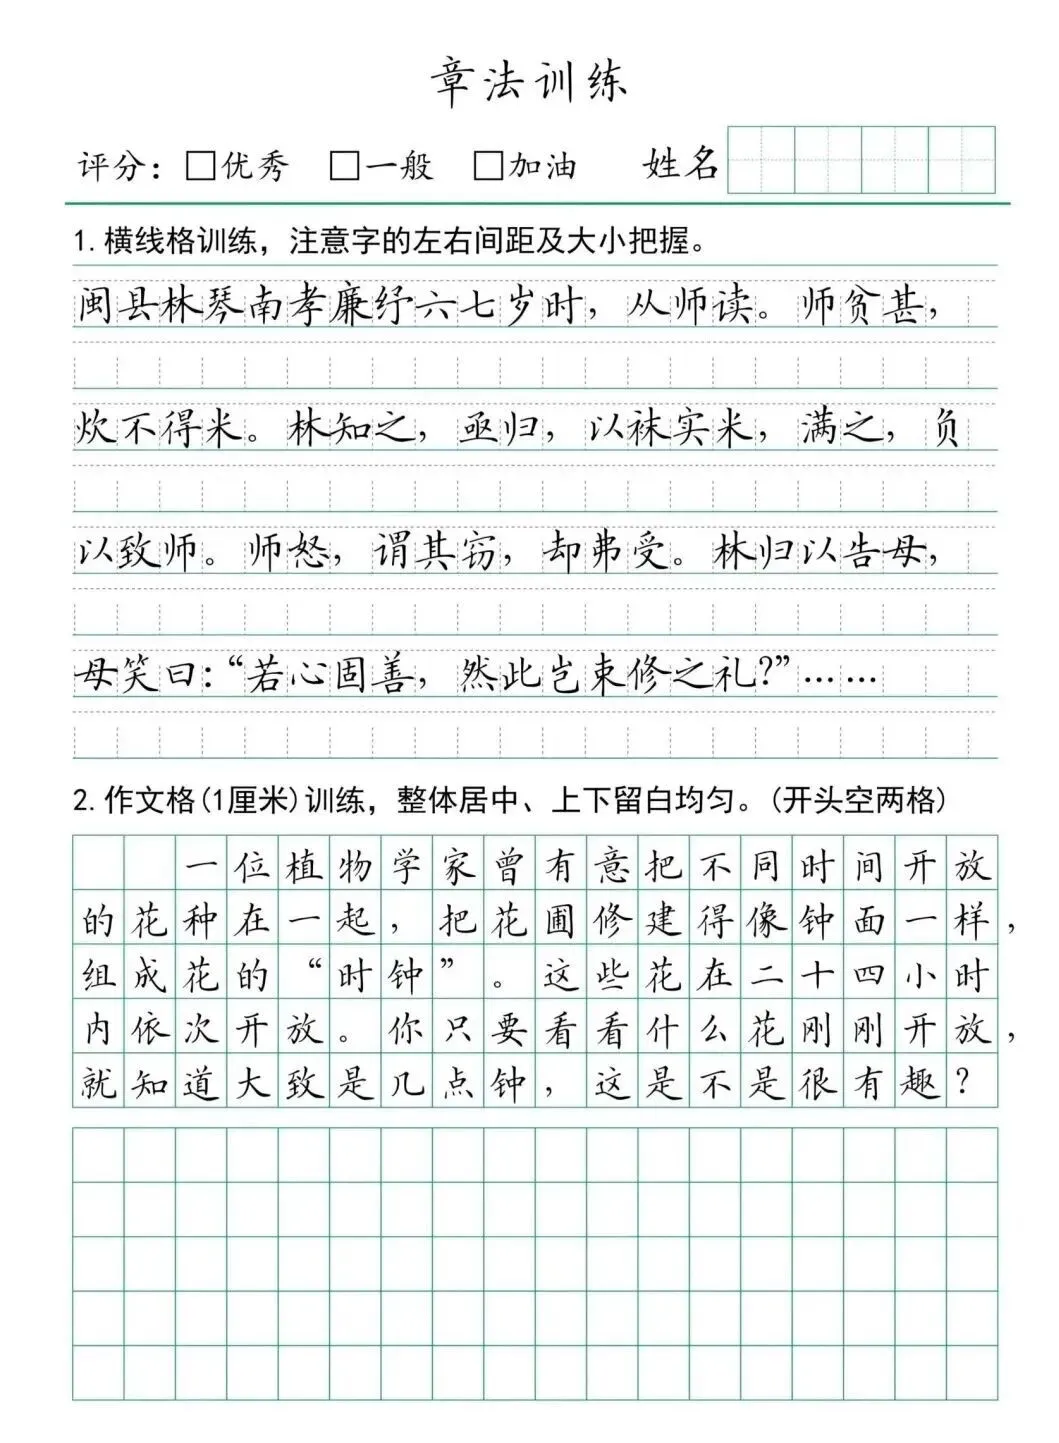 章法训练
评分：□优秀 □一般 □加油 姓名
1.横线格训练，注意字的左右间距及大小把握。
闽县林琴南孝廉纾六七岁时，从师读。师贫甚，
炊不得米。林知之，亟归，以袜实米，满之，负
以致师。师怒，谓其窃，却弗受。林归以告母，
母笑曰：“若心固善，然此岂束修之礼？”……
2.作文格(1厘米)训练，整体居中、上下留白均匀。(开头空两格)
一位植物学家曾有意把不同时间开放
的花种在一起，把花圃修建得像钟面一样，
组成花的“时钟”。这些花在二十四小时
内依次开放。你只要看看什么花刚刚开放，
就知道大致是几点钟，这是不是很有趣？